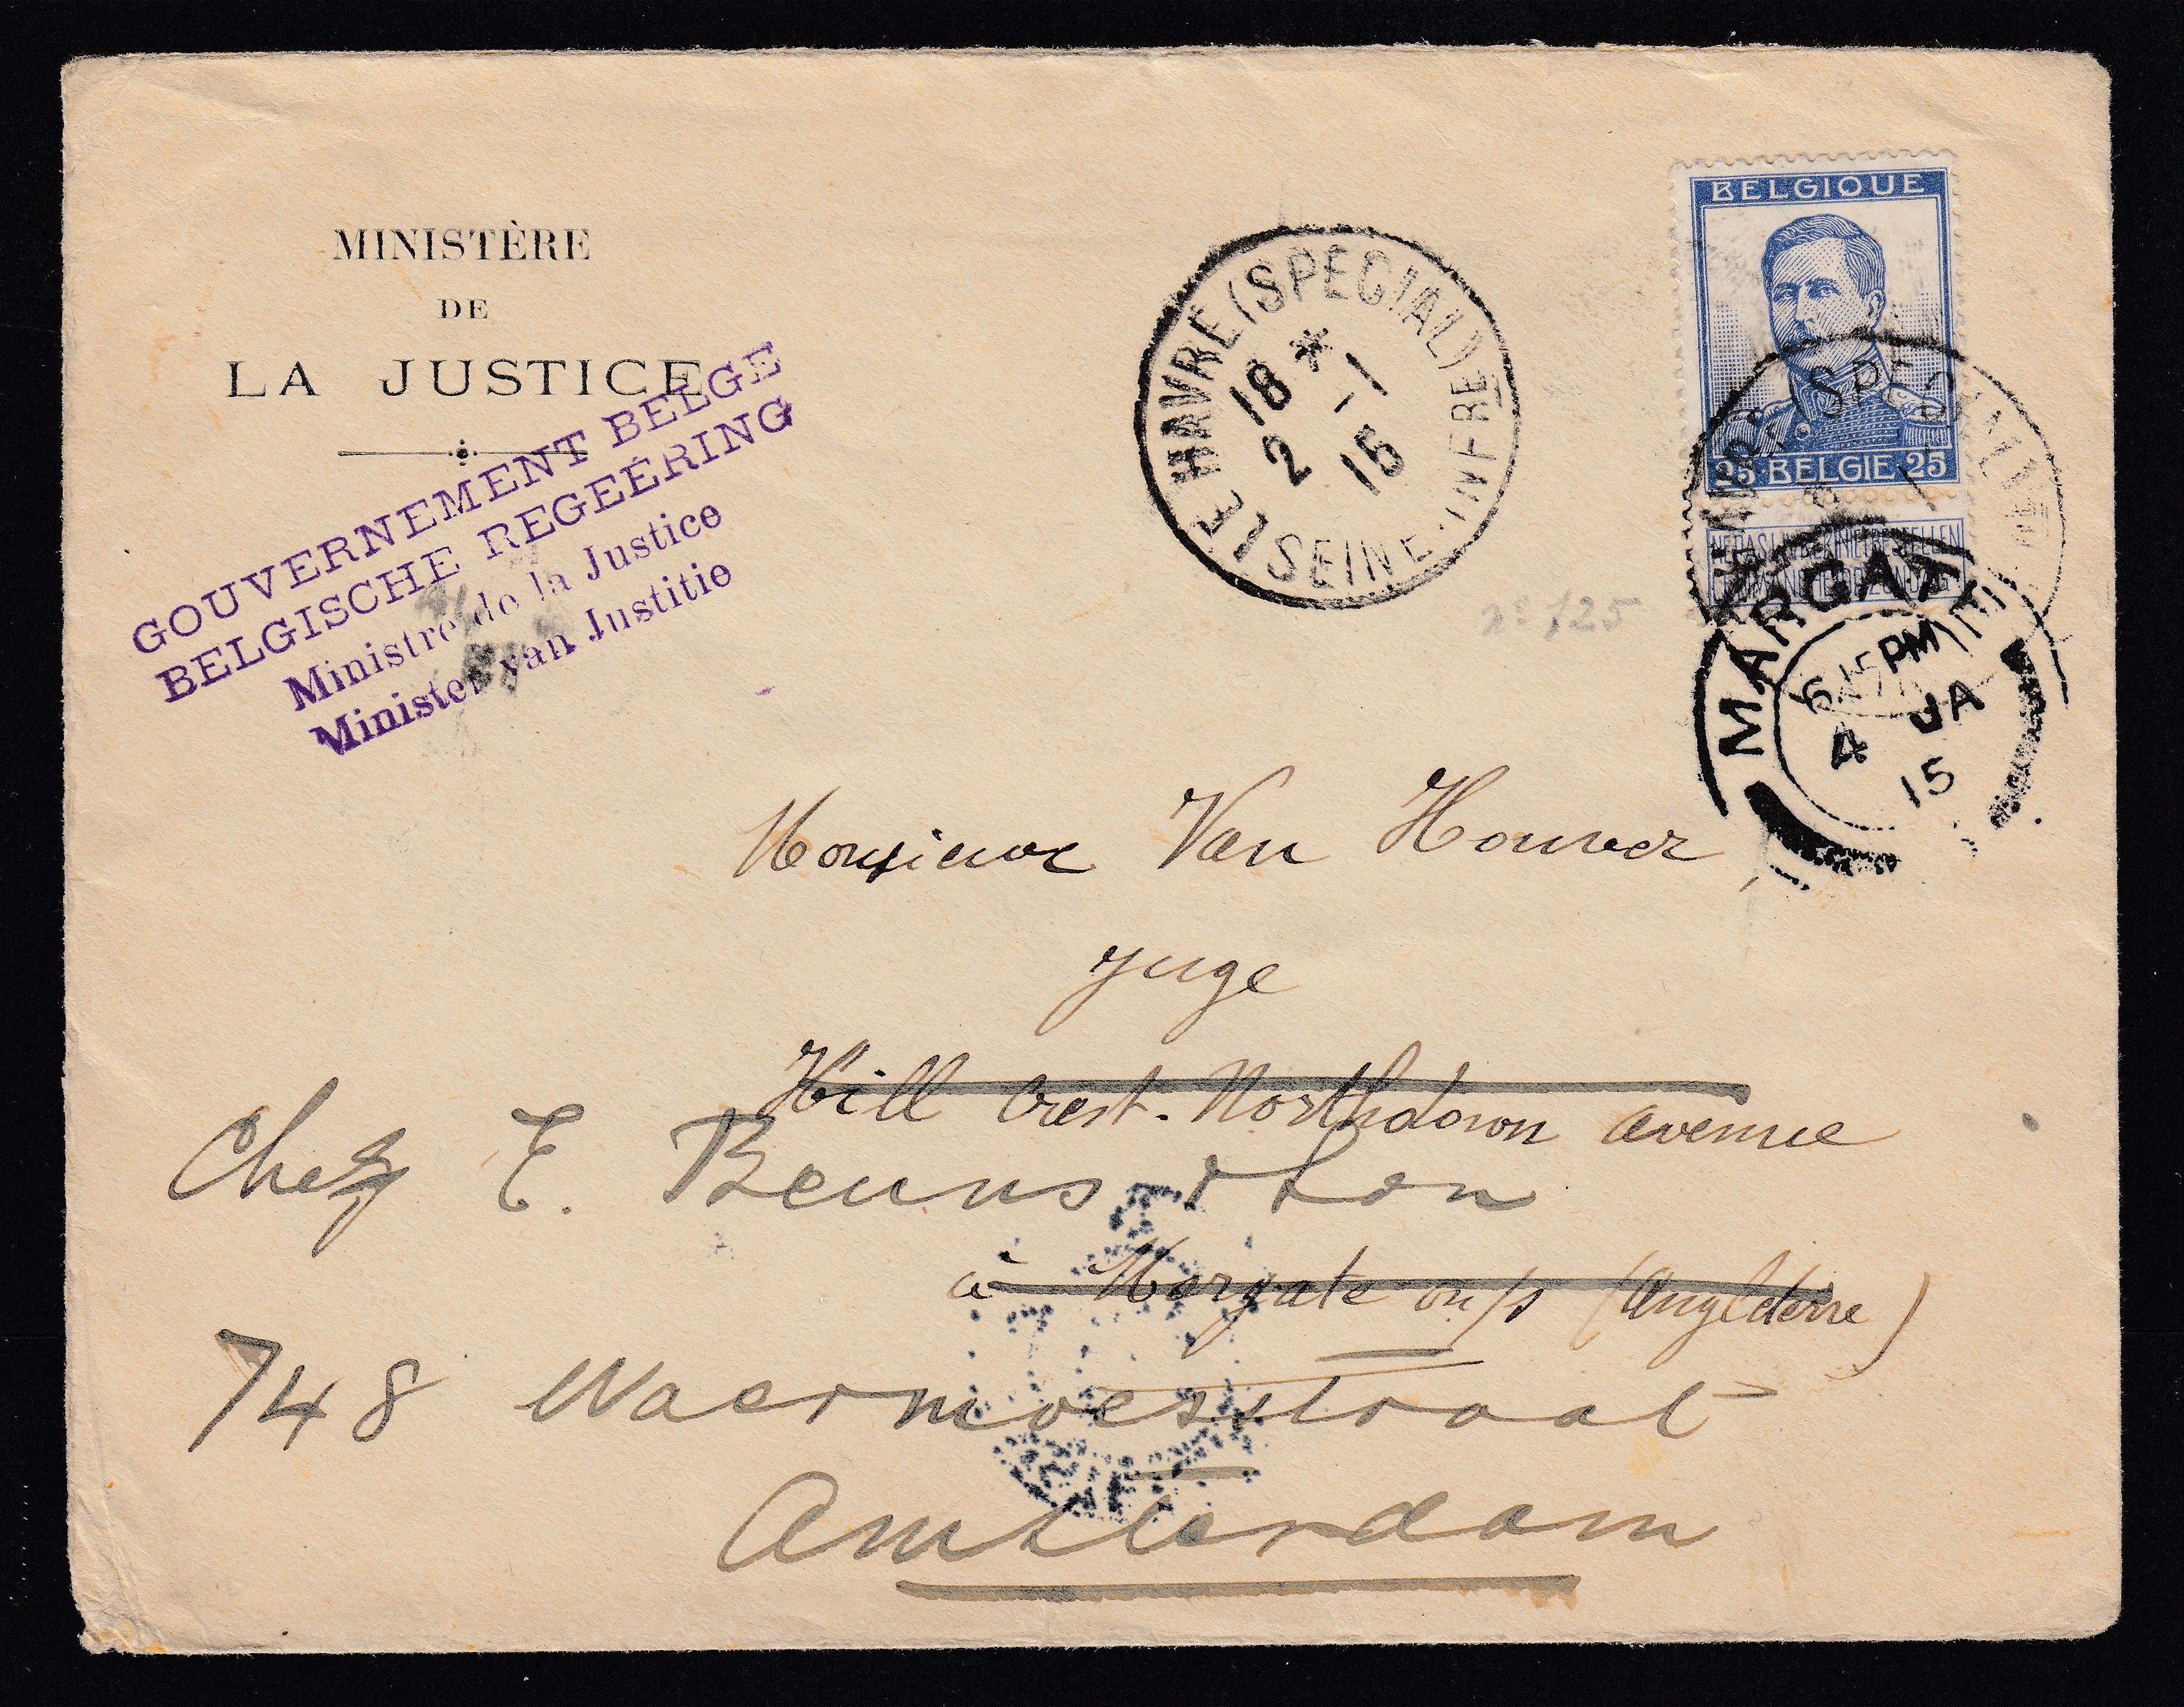 MINISTÈRE
DE
LA JUSTICE
GOUVERNEMENT BELGE
BELGISCHE REGEERING
Ministre de la Justice
Minister van Justitie
LE HAVRE (SPECIAL)
18 * 2 -1 15
SEINE-INFRE
BELGIQUE
25 BELGIE 25
MARGATE
6 15 PM
4 JA
15
no 125
Monsieur Van Houver,
Juge
Hill Crest. Northdown avenue
Chez E. Beuns
à Margate (Angleterre)
748 Waermoesstraat
Amsterdam